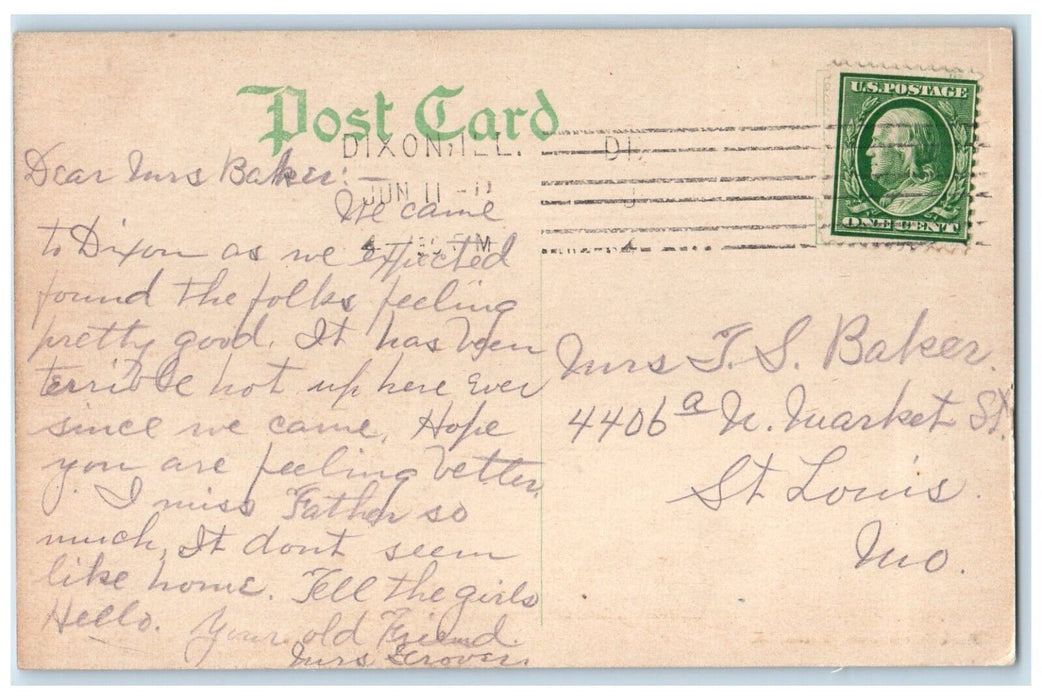 Post Card
U.S. POSTAGE
ONE CENT
DIXON, ILL.
JUN 11
Dear Mrs Baker:-
We came
to Dixon as we expected
found the folks feeling
pretty good. It has been
terrible hot up here ever
since we came. Hope
you are feeling better.
I miss Father so
much, It dont seem
like home. Tell the girls
Hello. Your old Friend.
Mrs
Mrs T. S. Baker.
4406 a N. Market St.
St Louis.
Mo.